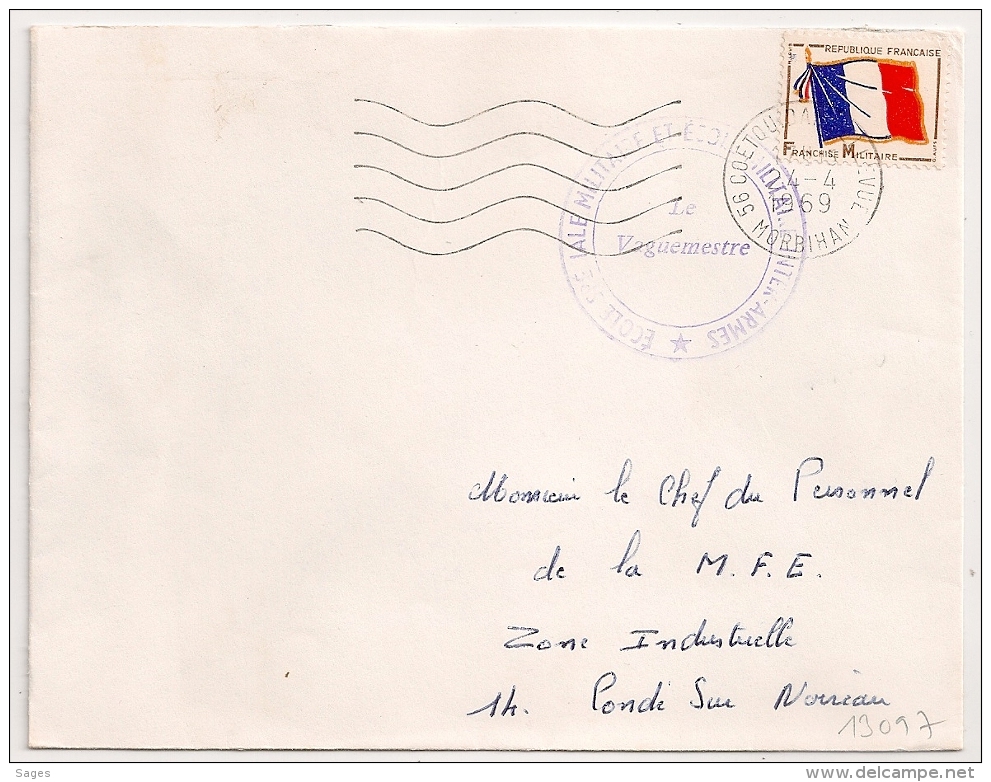 REPUBLIQUE FRANCAISE
FRANCHISE MILITAIRE
56 COETQUIDAN
4-4
1969
MORBIHAN
ÉCOLE SPÉCIALE MILITAIRE ET ÉCOLE MILITAIRE INTER-ARMES
Le
Vaguemestre
Monsieur le Chef du Personnel
de la M.F.E.
Zone Industrielle
14. Condé Sur Noireau
13097
Sages
delcampe.net